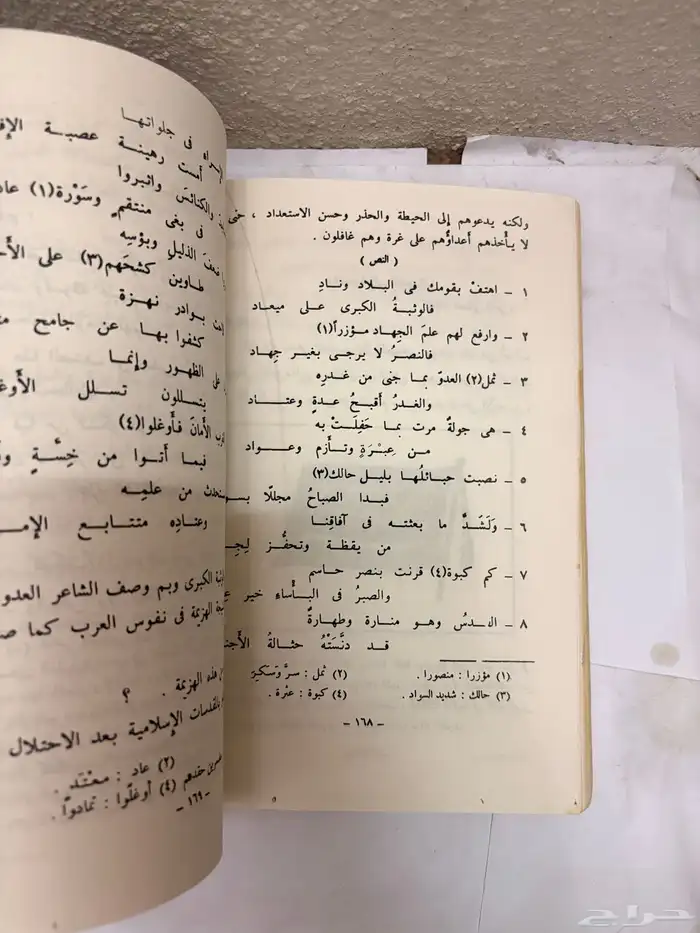 ولكنه يدعوهم إلى الحيطة والحذر وحسن الاستعداد ، حتى
لا يأْخذهم أعداؤُهم على غرة وهم غافلون .
( النص )
١ ـ اهتفْ بقومك فى البلاد ونادِ
فالوثبةُ الكبرى على ميعاد
٢ ـ وارفع لهم علمَ الجِهاد مؤزراً(١)
فالنصرُ لا يرجى بغير جِهاد
٣ ـ ثمل(٢) العدوّ بما جنى من غدرِه
والغدرُ أقبحُ عدةٍ وعتاد
٤ ـ هى جولةٌ مرت بما حَفِلَتْ به
من عِبْرَةٍ وتأَزم وعواد
٥ ـ نصبت حبائلُها بليل حالك(٣)
فبدا الصباحُ مجللًا
٦ ـ وَلَشَدَّ ما بعثته فى آفاقِنا
من يقظة وتحفُّز
٧ ـ كم كبوة(٤) قرنت بنصر حاسم
والصبرُ فى البأْساء خير
٨ ـ القدسُ وهو منارة وطهارةٌ
قد دنَّسَتْهُ حثالةُ
(١) مؤزرا : منصورا .
(٢) ثمل : سرَّ وسَكِرَ
(٣) حالك : شديد السواد .
(٤) كبوة : عثرة .
ـ ١٦٨ ـ
فى جلواتها
أمست رهينة عصبة
والكنائسَ واثبروا
فى بغى منتقمٍ وسَوْرة(١)
الذليلِ وبؤسِه
طاوين كشحَهم(٣) على
بوادر نهزة
كثفوا بها عن جامح
على الظهور وإنما
يتسللون تسلل
الأمانَ فأَوغلوا(٤)
فبما أَتوا من خِسَّةٍ
من عليه
وعتادِه متتابع
الكبرى وبم وصف الشاعر
الهزيمة فى نفوس العرب كما
هذه الهزيمة . ؟
الإسلامية بعد الاحتلال
(٢) عاد : معْتَد .
حقدهم (٤) أوغلُوا : تمادوا .
ـ ١٦٩ ـ
حراج